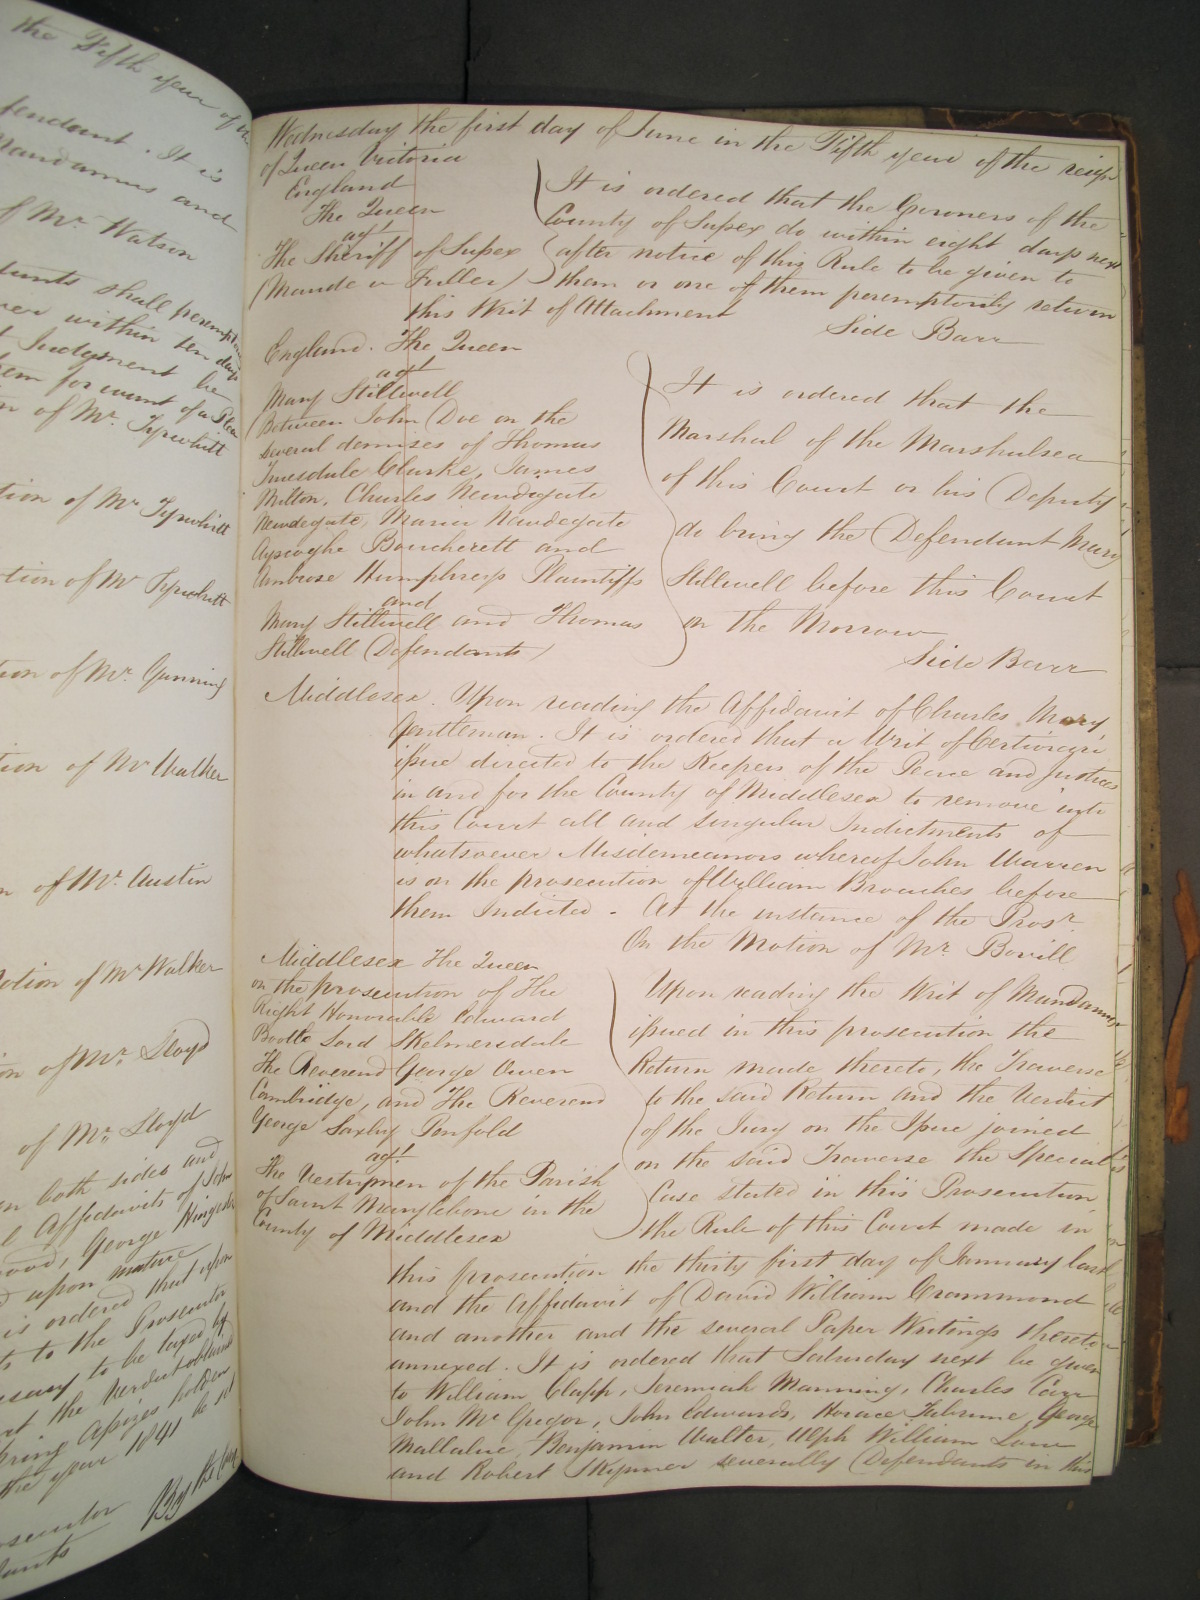 the Fifth year of
fendant. It is
Mandamus and
of Mr. Watson
dants shall
within ten days
Judgment be
for want of a Plea
of Mr. Tyrwhitt
tion of Mr. Tyrwhitt
tion of Mr. Tyrwhitt
tion of Mr. Gunning
tion of Mr. Walker
n of Mr. Austin
Motion of Mr. Walker
on of Mr. Lloyd
of Mr. Lloyd
on both sides and
Affidavits of John
George
upon mature
is ordered that upon
to the Prosecutor
to be taxed by
the Verdict obtained
Spring Assizes holden
the year 1841
By the Court
Wednesday the first day of June in the Fifth year of the reign
of Queen Victoria
England
The Queen
agt.
The Sheriff of Sussex
(Maude v Fuller)
It is ordered that the Coroners of the
County of Sussex do within eight days next
after notice of this Rule to be given to
them or one of them peremptorily return
this Writ of Attachment
Side Barr
England. The Queen
agt
Mary Stillwell
Between John Doe on the
several demises of Thomas
Truesdale Clarke, James
Milton, Charles Newdigate
Newdegate, Maria Newdegate
Ayscoghe Boucherett and
Ambrose Humphreys Plaintiffs
and
Mary Stillwell and Thomas
Stillwell Defendants)
It is ordered that the
Marshal of the Marshalsea
of this Court or his Deputy
do bring the Defendant Mary
Stillwell before this Court
on the Morrow
Side Barr
Middlesex. Upon reading the Affidavit of Charles Mary
Gentleman. It is ordered that a Writ of Certiorari
issue directed to the Keepers of the Peace and Justices
in and for the County of Middlesex to remove into
this Court all and singular Indictments of
whatsoever Misdemeanors whereof John Warren
is on the prosecution of William Broaches before
them Indicted. At the instance of the Prosr.
On the Motion of Mr. Bovill
Middlesex The Queen
on the prosecution of The
Right Honorable Edward
Bootle Lord Skelmersdale
The Reverend George Owen
Cambridge, and The Reverend
George Saxby Penfold
agt.
The Vestrymen of the Parish
of Saint Marylebone in the
County of Middlesex
Upon reading the Writ of Mandamus
issued in this prosecution the
Return made thereto, the Traverse
to the said Return and the Verdict
of the Jury on the Issue joined
on the said Traverse the Special
Case stated in this Prosecution
the Rule of this Court made in
this prosecution the thirty first day of January last
and the Affidavit of David William Crammond
and another and the several Paper Writings thereto
annexed. It is ordered that Saturday next be given
to William Clapp, Jeremiah Manning, Charles Carr
John Mc.Gregor, John Edwards, Horace George
Mallalue, Benjamin Walter, William Low
and Robert Skynner severally Defendants in this